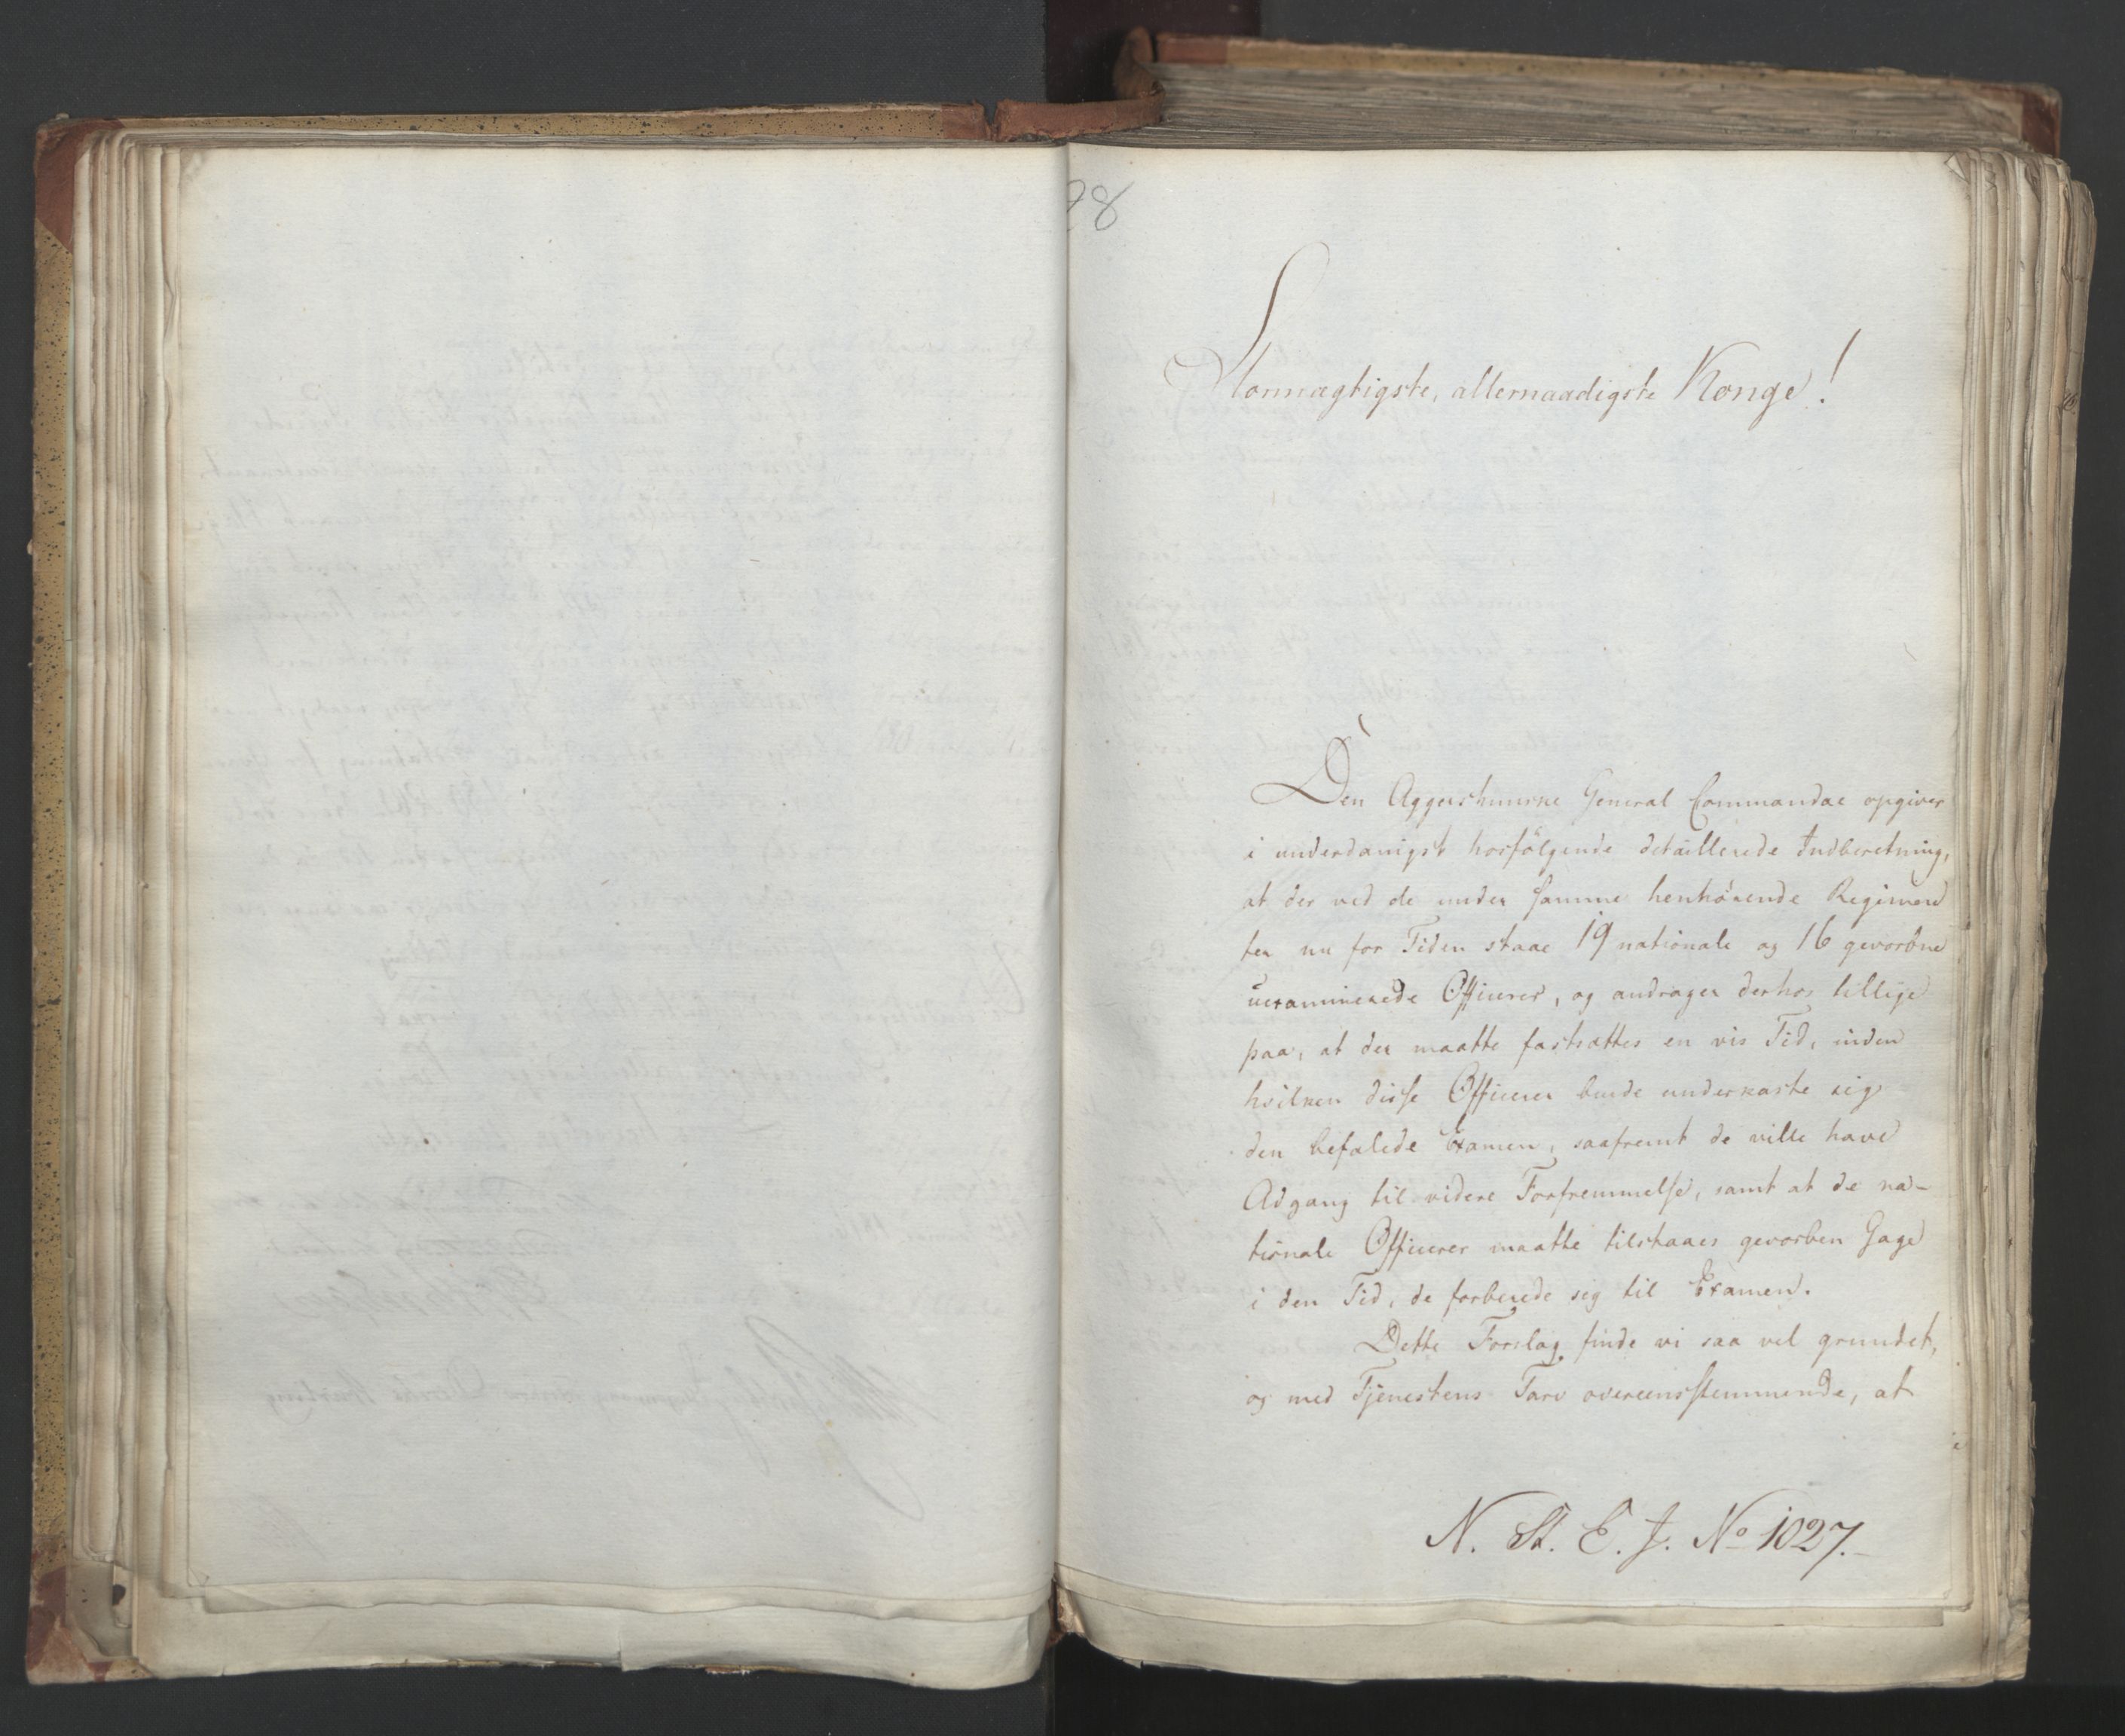 78
Stormægtigste, allernaadigste Konge!
Den Aggershuuske General Commandoe opgiver
i underdanigst hosfölgende detaillerede Indberetning,
at der ved de under samme henhørende Regimen-
ter nu for Tiden staae 19 nationale og 16 gevorbne
uexaminerede Officerer, og andrager derhos tillige
paa, at der maatte fastsættes en vis Tid, inden
hvilken disse Officerer burde underkaste sig
den befalede Examen, saafremt de ville have
Adgang til videre Forfremmelse, samt at de na-
tionale Officerer maatte tilstaaes gevorben Gage
i den Tid, de forberede sig til Examen.
Dette Forslag finde vi saa vel grundet,
og med Tjenestens Tarv overeensstemmende, at
N. St. E. J. No 1027.-